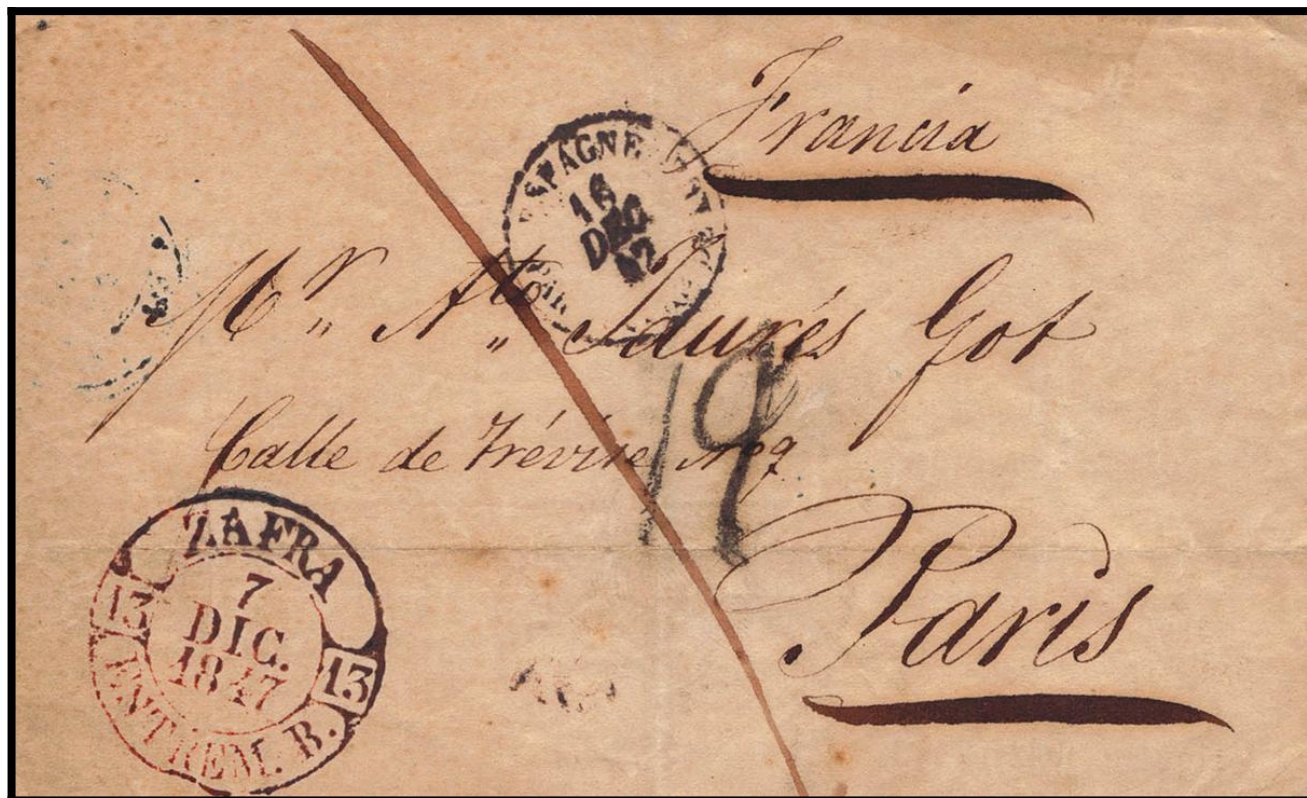 Francia
ESPAGNE
16
DEC
47
Mr. Ato. Jaurés Got
Calle de Trévise No 9
19
Paris
ZAFRA
7
DIC.
1847
13 13
ESTREM. B.